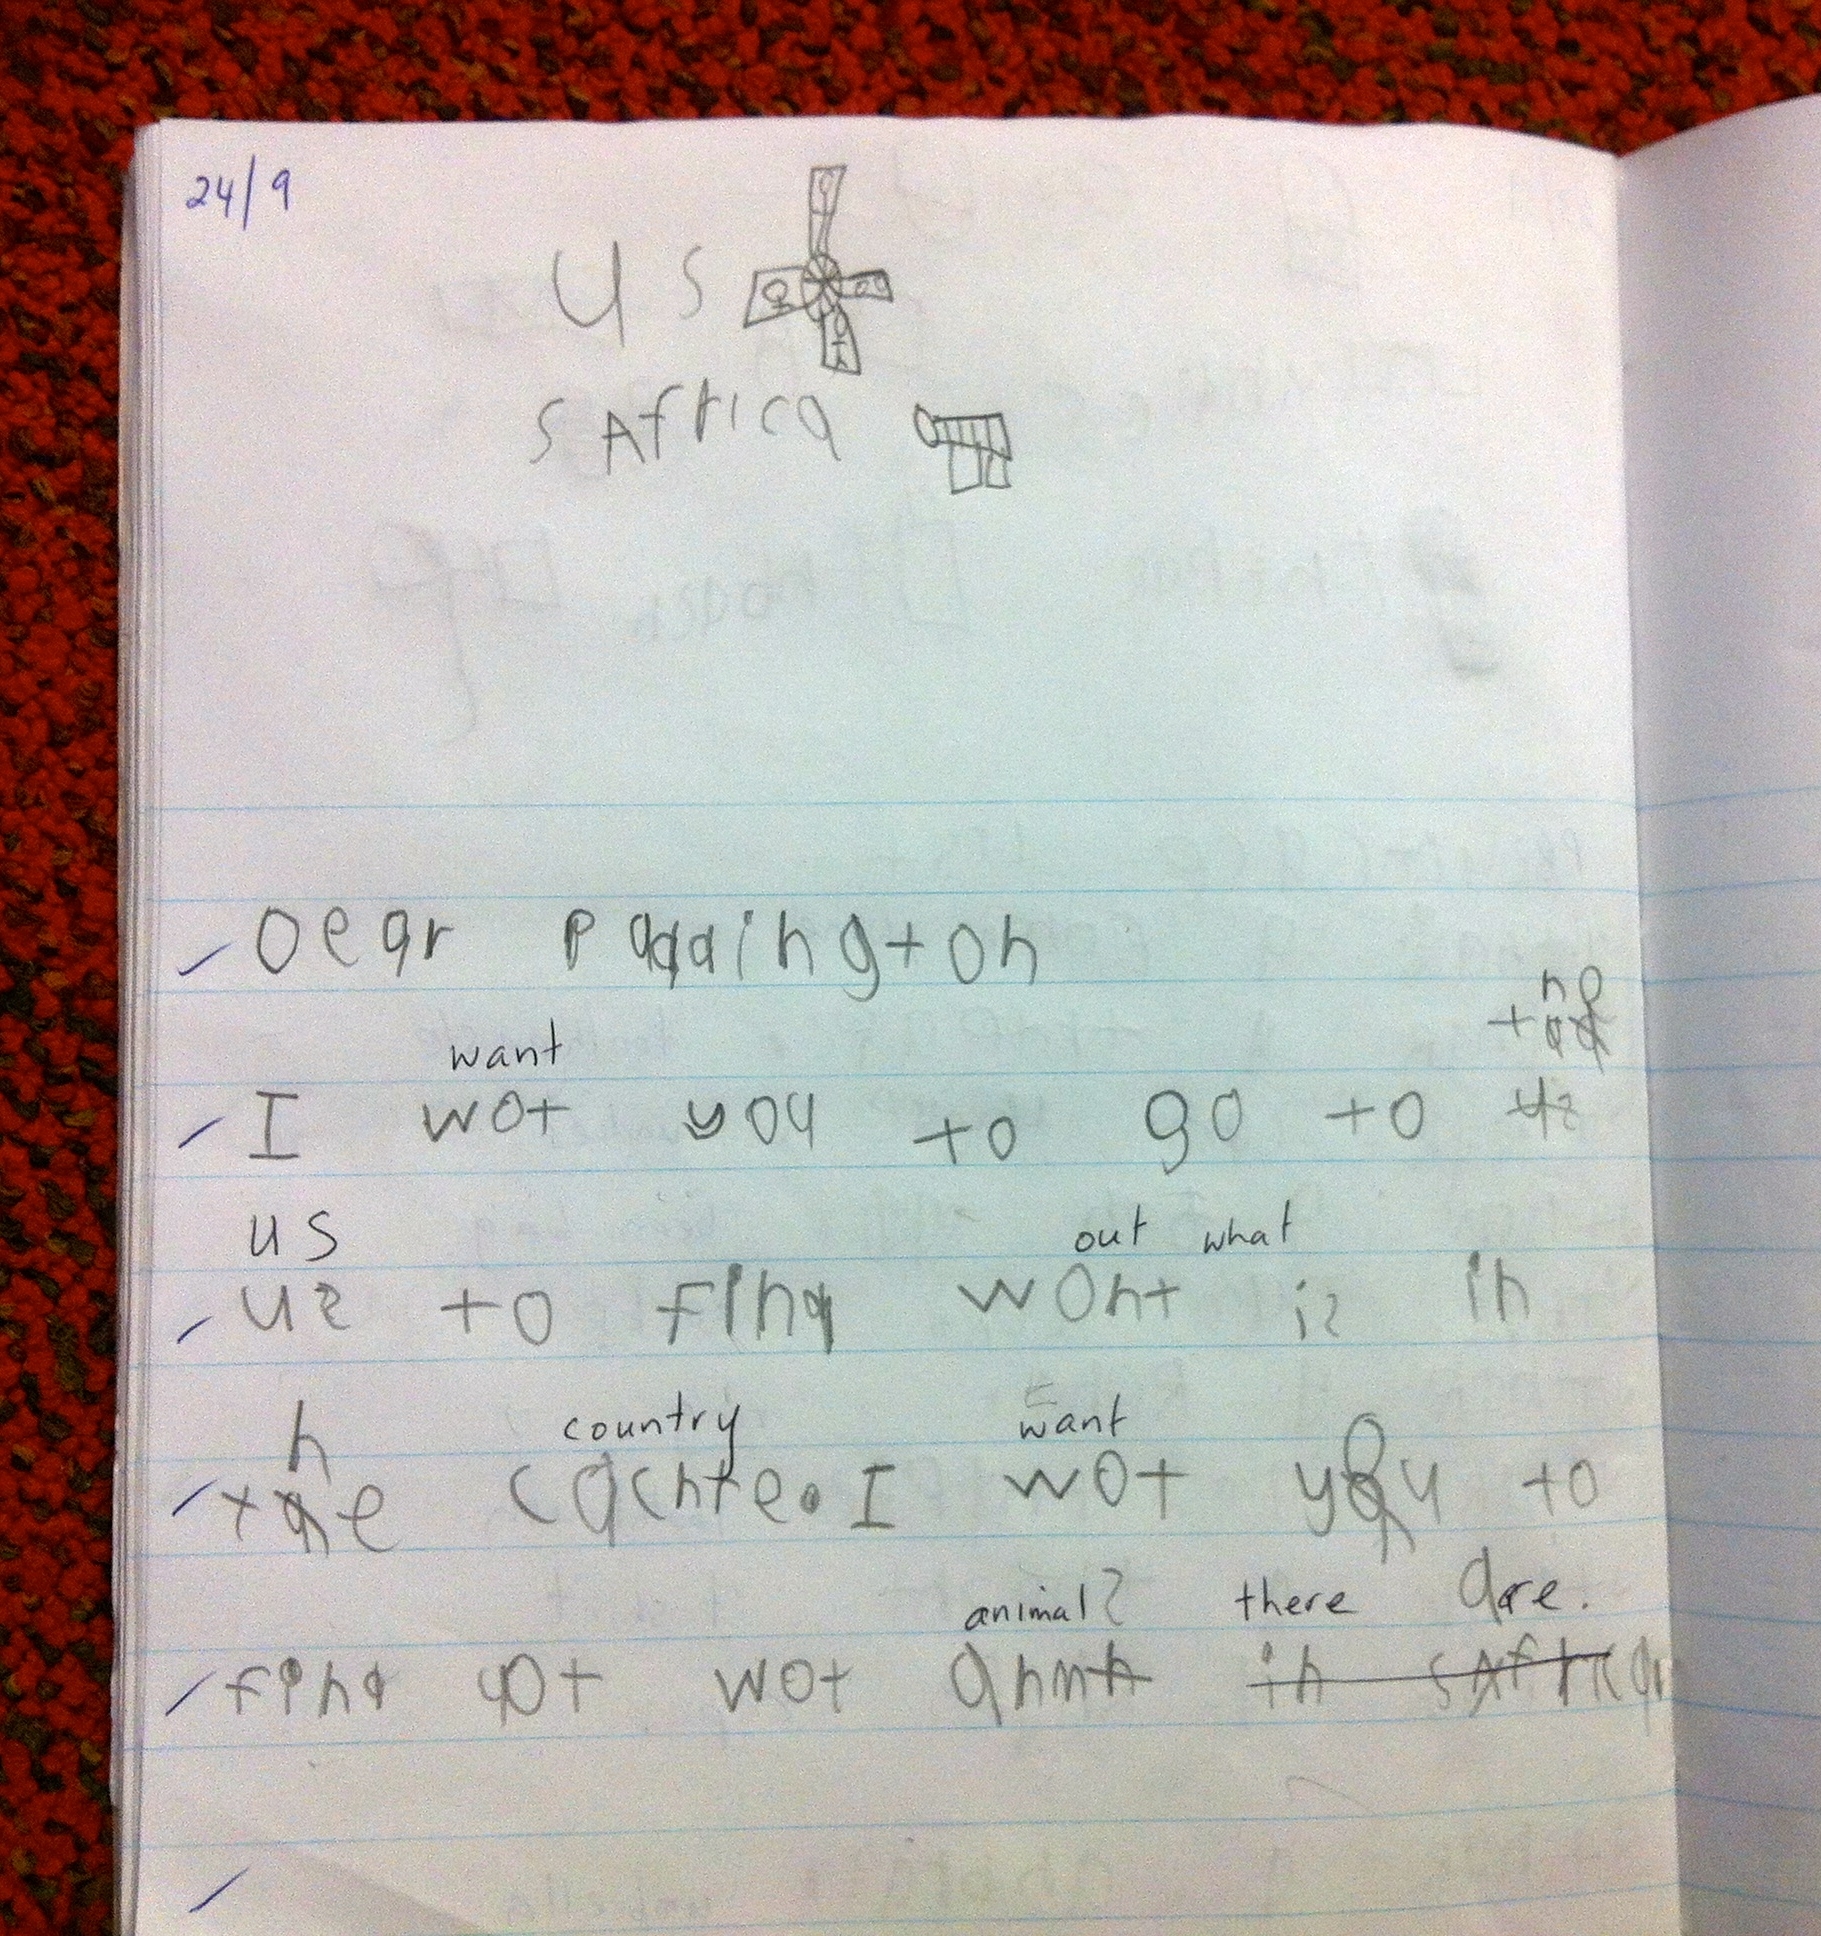 24/9
US
SAfrica
Dear Paddington
the
want
I wot you to go to uz
us out what
uz to find wont iz in
h country want
the cachte. I wot you to
animal? there are.
find ot wot anmh in SAfrica